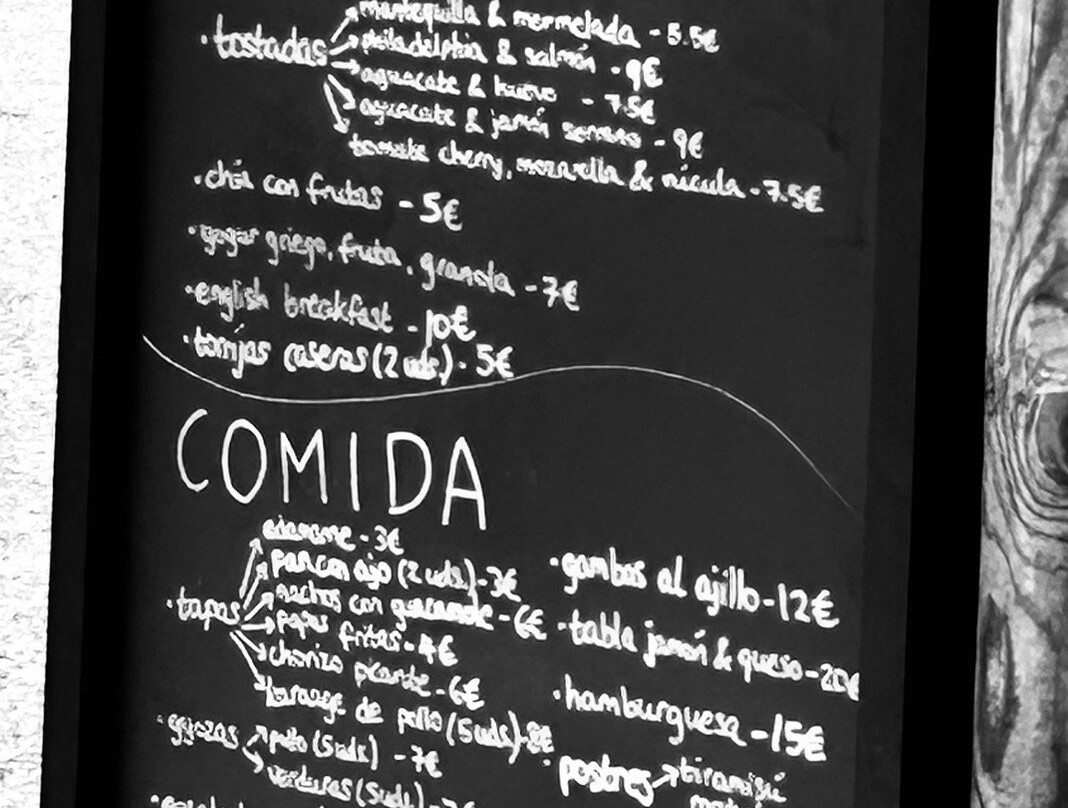 mantequilla & mermelada - 5.5€
· tostadas
philadelphia & salmón - 9€
aguacate & huevo - 7.5€
aguacate & jamón serrano - 9€
tomate cherry, mozzrella & rúcula - 7.5€
· chía con frutas - 5€
· yogur griego, fruta, granola - 7€
· english breakfast - 10€
· torrijas caseras (2 uds.) - 5€
COMIDA
edamame - 3€
pan con ajo (2 uds.) - 3€
· tapas
nachos con guacamole - 6€
papas fritas - 4€
chorizo picante - 6€
karaage de pollo (5 uds) - 8€
· gyozas
pollo (5 uds) - 7€
verduras (5 uds) -
· gambas al ajillo - 12€
· tabla jamón & queso - 20€
· hamburguesa - 15€
· postres
tiramisú